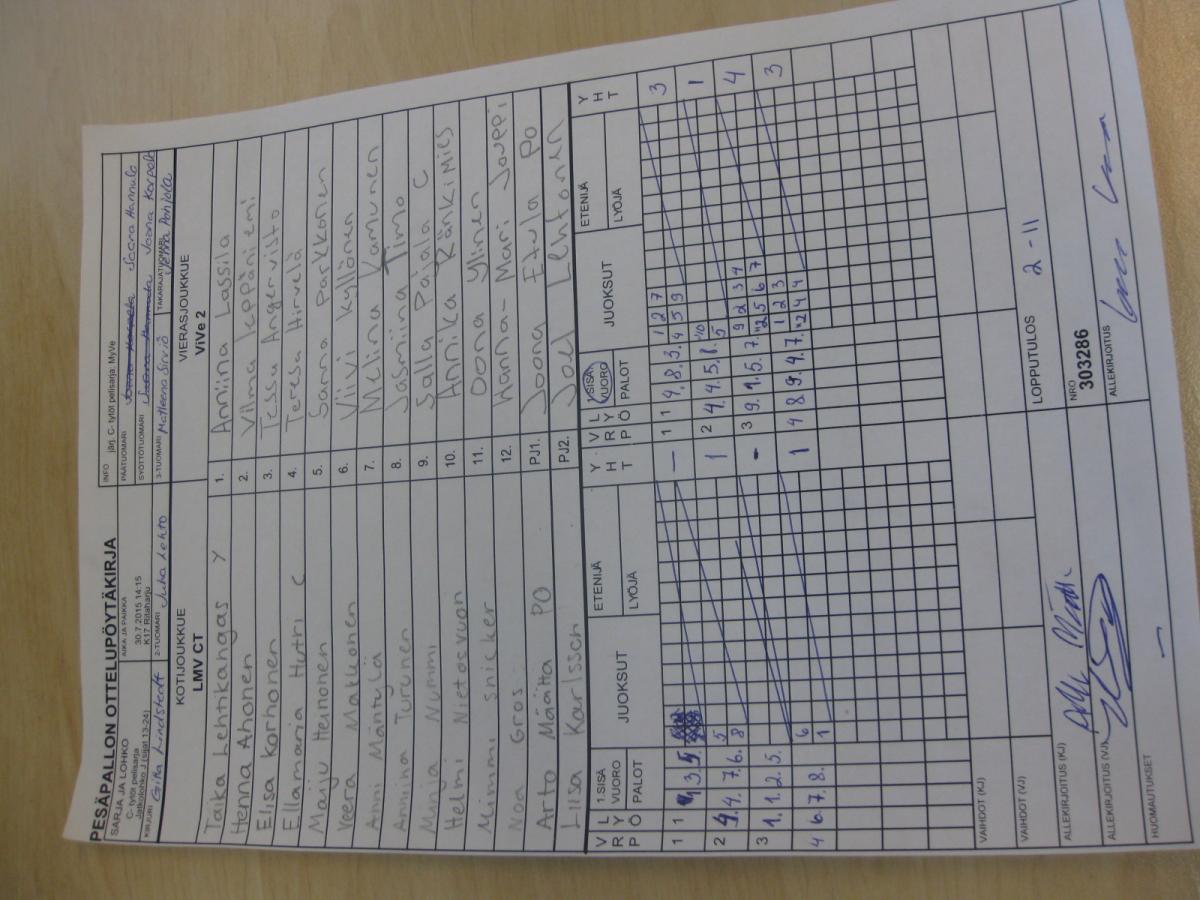 PESÄPALLON OTTELUPÖYTÄKIRJA
SARJA JA LOHKO
C- tytöt pelisarja
Jatkolohko J (sijat 13-24)
AIKA JA PAIKKA
30.7.2015 14:15
K17 Ritaharju
INFO järj. C- tytöt pelisarja: MyVe
PÄÄTUOMARI Saara Hannula
SYÖTTÖTUOMARI Joona Korpela
KIRJURI Lindstedt
2-TUOMARI Juha Lehto
3-TUOMARI Matleena Sirviö
TAKARAJATUOMARI Veera Pohjola
KOTIJOUKKUE
LMV CT
VIERASJOUKKUE
ViVe 2
Taika Lehtikangas Y 1. Anniina Lassila
Henna Ahonen 2. Vilma Leppäniemi
Elsa Karhonen 3. Tessa Angervisto
Ellamaria Hutri C 4. Teresa Hirvelä
Maiju Heinonen 5. Sanna Parkkonen
Veera Matkonen 6. Viivi Kyllönen
Anni Mäntylä 7. Nelina Kamunen
Anniina Turunen 8. Jasmiina Timo
Minja Nummi 9. Salla Pajala C
Helmi Nietosvuori 10. Annika Ränkimies
Mimmi Snicker 11. Oona Ylinen
Noa Grois 12. Hanna-Mari Jouppi
Arto Määttä PO PJ1. Joona Etula PO
Liisa Karlsson PJ2. Joel Lehtonen
VRP LYÖ 1.SISÄVUORO PALOT JUOKSUT ETENIJÄ LYÖJÄ YHT
VRP LYÖ 2.SISÄVUORO PALOT JUOKSUT ETENIJÄ LYÖJÄ YHT
1 1 3 5 – 1 1 4. 8. 3. 1 2 7 3
4 5 9
2 4. 4. 7. 6. 5 1 2 4. 4. 5. 1. 10 1
8 5
3 1. 1. 2. 5. - 3 9. 1. 5. 7. 9 2 3 4 4
2 5 6 7
4 6. 7. 8. 6 1 4 8 9. 4. 7. 1 2 3 3
1 2 4 4
VAIHDOT (KJ)
VAIHDOT (VJ)
LOPPUTULOS 2 - 11
ALLEKIRJOITUS (KJ)
NRO
303286
ALLEKIRJOITUS (VJ)
ALLEKIRJOITUS
HUOMAUTUKSET –